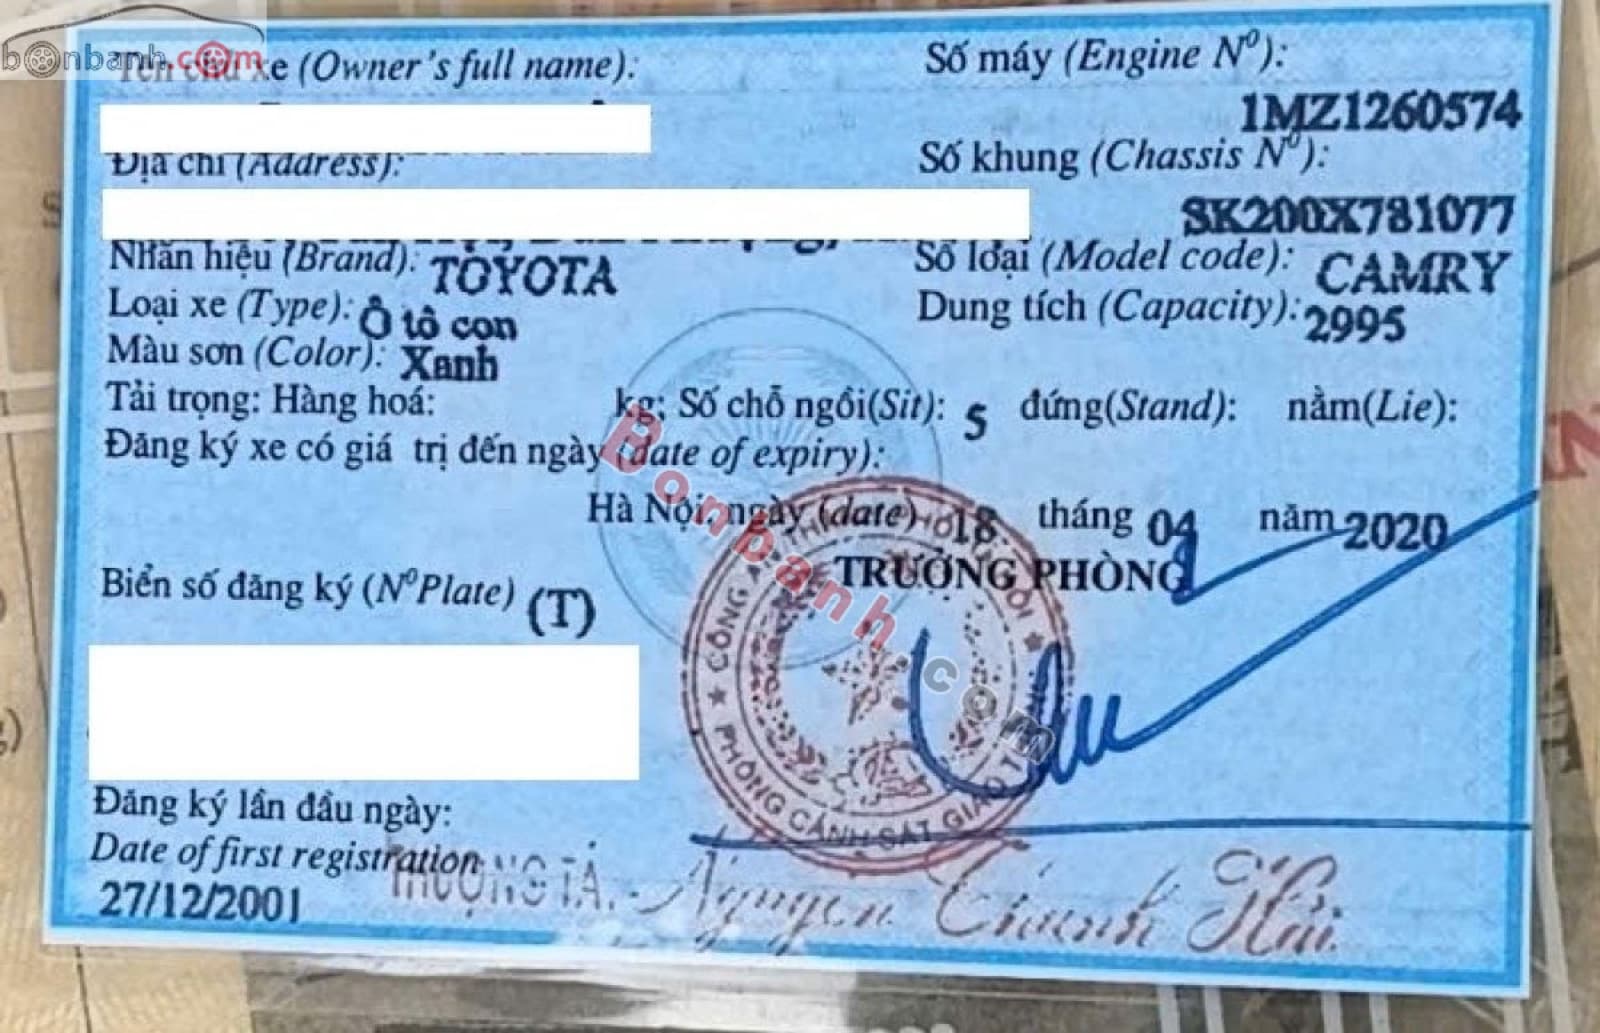 bonbanh.com
Tên chủ xe (Owner's full name):
Số máy (Engine Nº):
1MZ1260574
Địa chỉ (Address):
Số khung (Chassis Nº):
SK200X781077
Nhãn hiệu (Brand): TOYOTA
Số loại (Model code): CAMRY
Loại xe (Type): Ô tô con
Dung tích (Capacity): 2995
Màu sơn (Color): Xanh
Tải trọng: Hàng hoá: kg; Số chỗ ngồi(Sit): 5 đứng(Stand): nằm(Lie):
Đăng ký xe có giá trị đến ngày (date of expiry):
Hà Nội, ngày (date) 18 tháng 04 năm 2020
TRƯỞNG PHÒNG
Biển số đăng ký (NºPlate) (T)
Bonbanh.com
PHÒNG CẢNH SÁT GIAO
Đăng ký lần đầu ngày:
Date of first registration
27/12/2001
THƯỢNG TÁ. Nguyen Thanh Hải